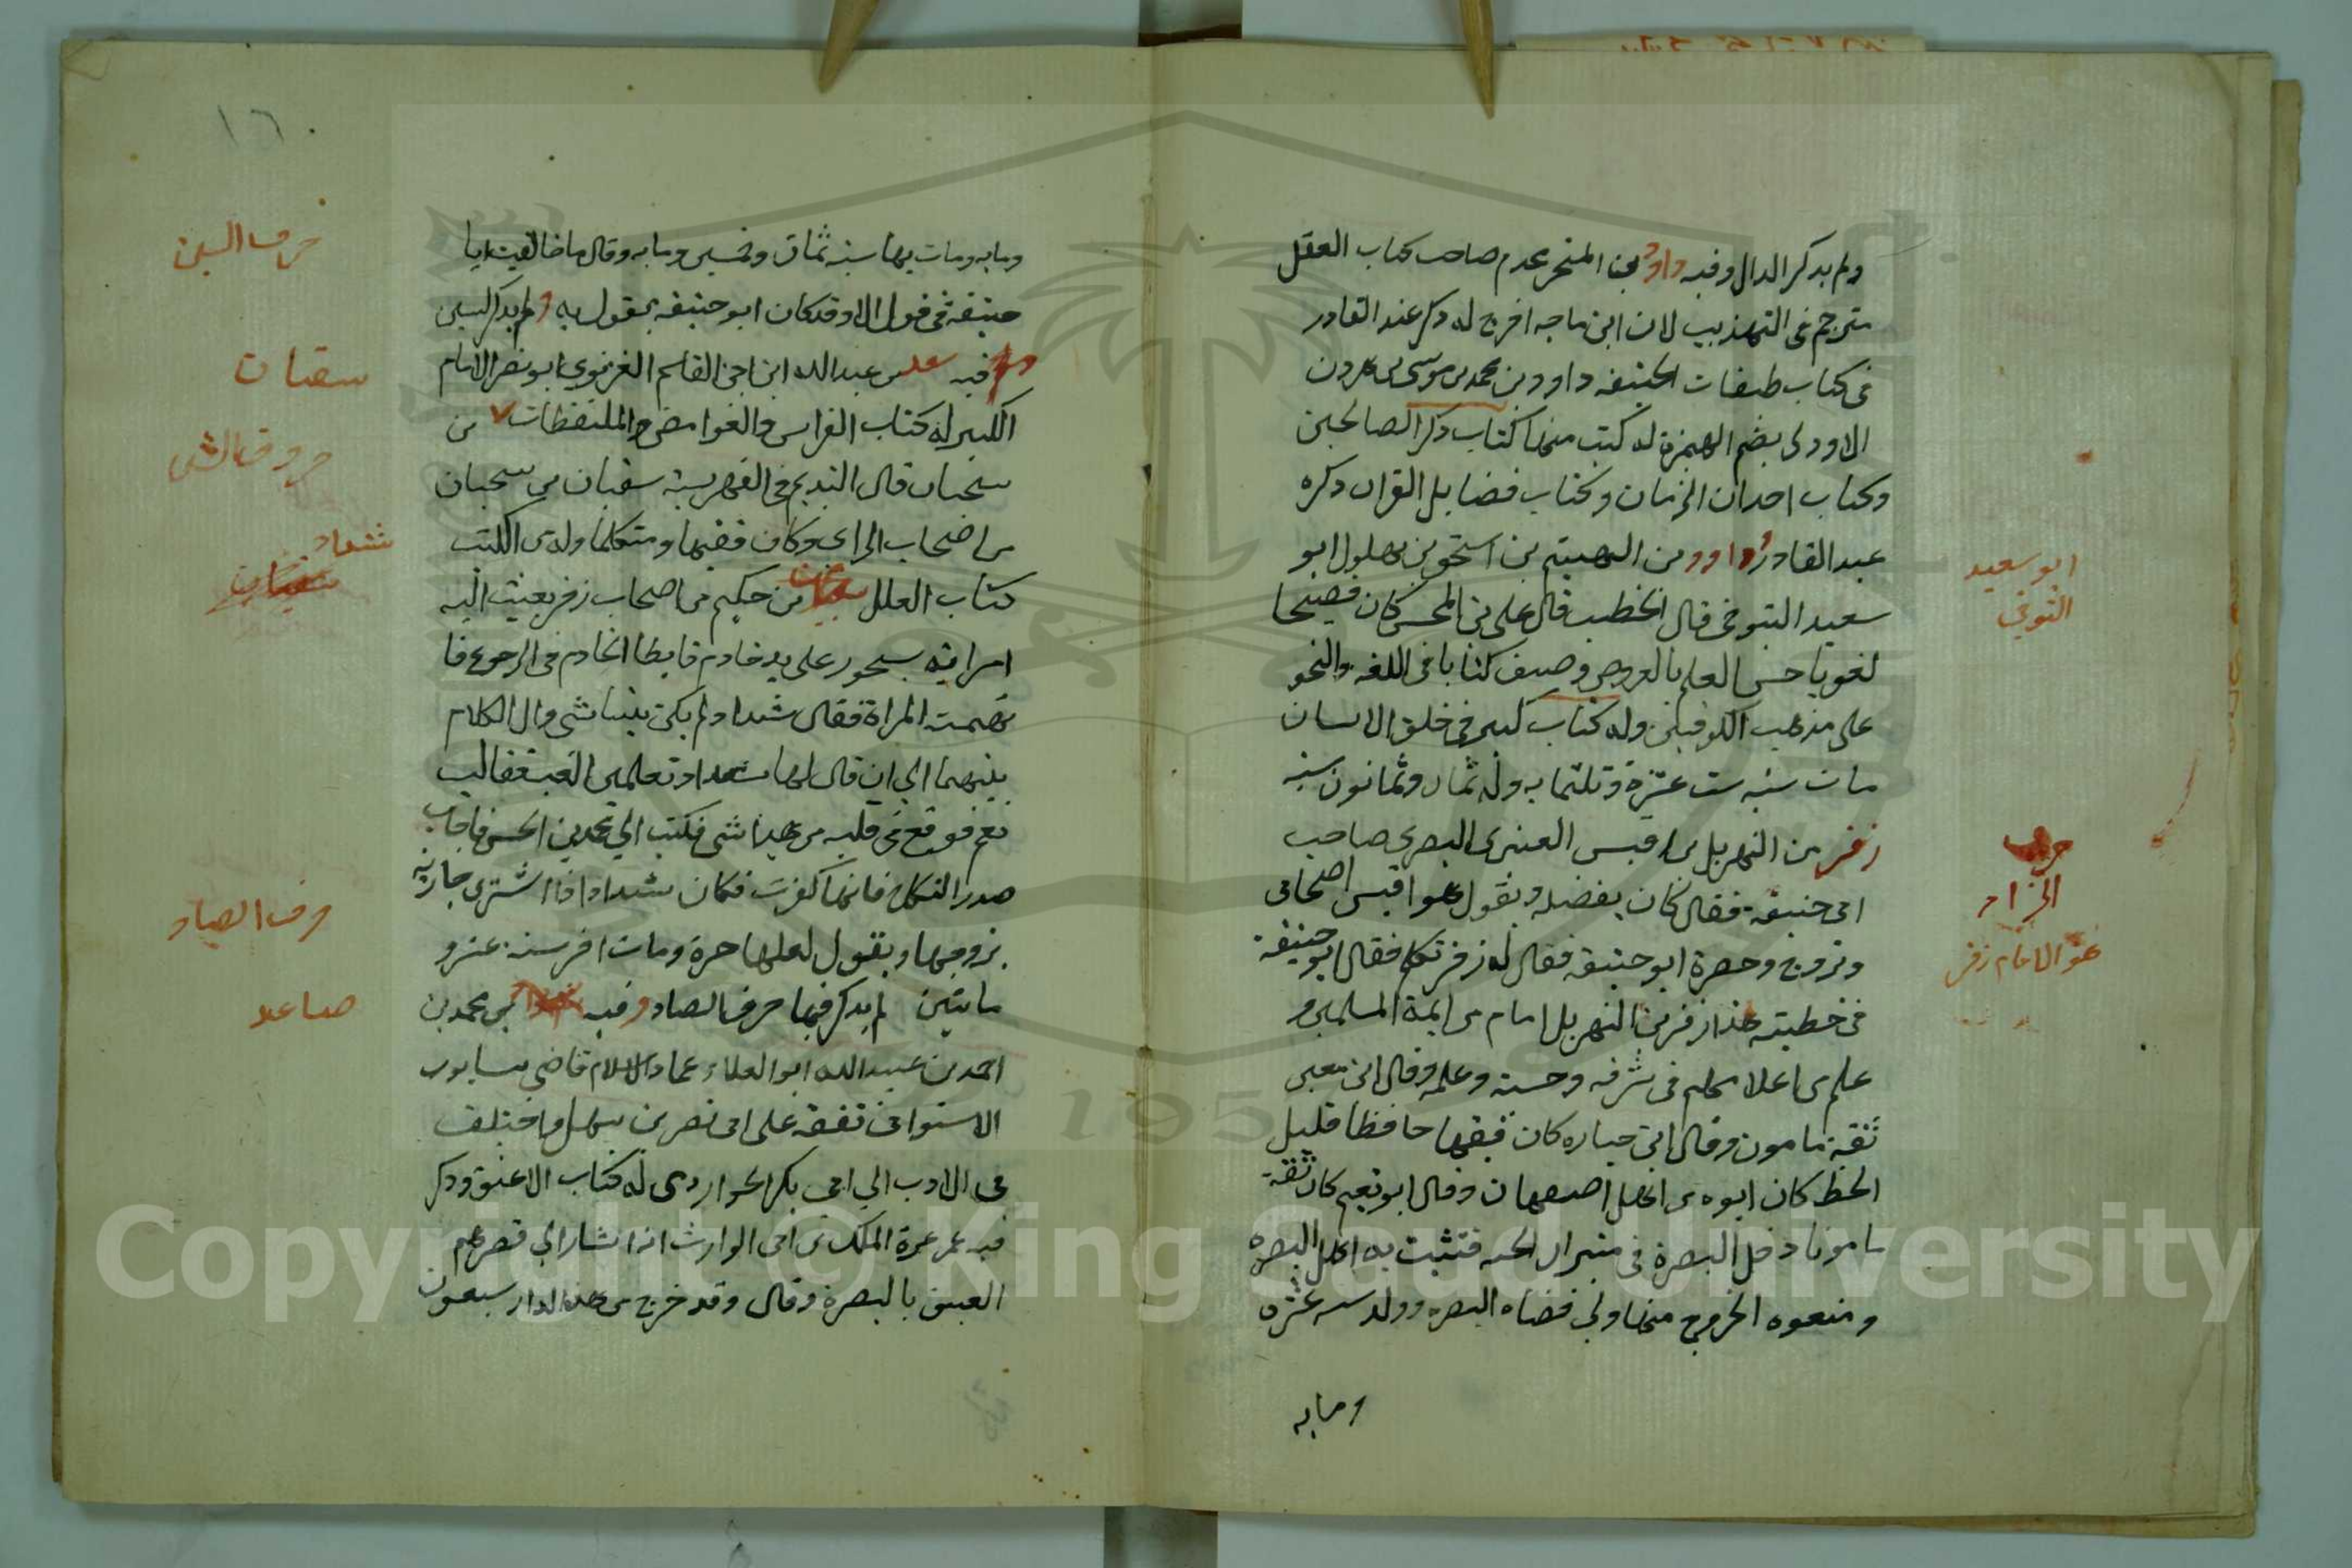 ولم يذكر الدال وفيه داود بن المخبر عدم صاحب كتاب العقل
مترجم في التهذيب لان ابن ماجه اخرج له ذكر عند القادر
في كتاب طبقات الحنيفه داود بن محمد بن موسى بن هرون
الاودنى بضم الهمزة له كتب منها كتاب ذكر الصالحين
وكتاب احداث الزمان وكتاب فضايل القران ذكره
عبد القادر داود بن الهيثم بن اسحق بن بهلول ابو
سعيد التنوخى قال الخطيب قال على بن المحسن كان فصيحا
لغويا حسن العلم بالعروض وصنف كتابا فى اللغه والنحو
على مذهب الكوفيين وله كتاب كبير فى خلق الانسان
مات سنه ست عشرة وثلثمايه وله ثمان وثمانون سنه
زفر بن الهذيل بن قيس العنبرى البصرى صاحب
ابى حنيفه فقال كان يفضله ويقول هو اقيس اصحابى
وتزوج وحضرة ابو حنيفه فقال له زفر تكلم فقال ابو حنيفه
فى خطبته هذا زفر بن الهذيل امام من ايمة المسلمين و
علم من اعلامهم فى شرفه وحسبه وعلمه وقال ابن معين
ثقة مامون وقال ابن حبان كان فقيها حافظا قليل
الخطا كان ابوه من اهل اصبهان وقال ابو نعيم كان ثقة
مامونا دخل البصرة فى ميراث اخيه فتشبث به اهل البصره
ومنعوه الخروج منها ولى قضاء البصره وولد سنه عشره
ومايه
ابو سعيد
التنوخى
حرف
الزاء
هو الامام زفر
١٦
ومايه ومات بها سنه ثمان وخمسين ومايه وقال ما خالفت ابا
حنيفه فى قول الا وقد كان ابو حنيفه يقول به ولم يذكر السين
وفيه على بن عبد الله ابن ابى القاسم الغزنوى ابو نصر الامام
الكبير له كتاب الغرايب والغوامض والملتقطات بن
سحبان قال النديم فى الفهرسة سقبان بن سحبان
من اصحاب الراى وكان فقيها ومتكلما وله من الكتب
كتاب العلل بن حكيم من اصحاب زفر بعثت اليه
امراته بسحور على يد خادم فابطا الخادم فى الرجوع فا
تهمت المراة فقال شداد لم يكن بيننا شى وال الكلام
بينهما الى ان قال لها شداد تعلمين الغيب فقالت
نعم فوقع فى قلبه من هذا شى فكتب الى محمد بن الحسن فاجاب
جدد النكاح فانها كفرت فكان شداد اذا اشترى جاريه
تزوجها ويقول لعلها حرة ومات اخر سنه عشر و
مايتين لم يذكر فيها حرف الصاد وفيه بن محمد بن
احمد بن عبيد الله ابو العلاء عماد الاسلام قاضى نيسابور
الاستوائى تفقه على ابى نصر بن سهل واختلف
فى الادب الى ابى بكر الخوارزمى له كتاب الاعتقاد ذكر
فيه عن عبد الملك بن ابى الوارث انه اشار الى قصرهم
العتيق بالبصرة وقال وقد خرج من هذه الدار سبعون
حرف السين
سقبان
حروف الشين
شداد
حرف الصاد
صاعد
Copyright © King Saud University
195